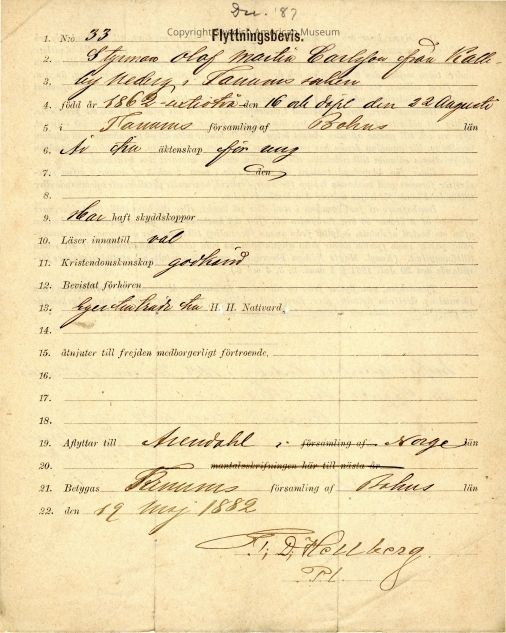 Dec. '87
Copyright American Museum
1. N:o 33 Flyttningsbevis.
2. Styrman Olof Martin Carlsson från Kalle-
3. by Nederg i Tanums socken
4. född år 1862 den 16 och döpt den 22 Augusti
5. i Tanums församling af Bohus län
6. Är äktenskap för ung
7. den
8.
9. Har haft skyddskoppor
10. Läser innantill väl
11. Kristendomskunskap godkänd
12. Bevistat förhören
13. Eger tillträde till H. H. Nattvard,
14.
15. åtnjuter till frejden medborgerligt förtroende,
16.
17.
18.
19. Aflyttar till Arendahl i församling af Norge län
20. mantalsskrifningen här till nästa år
21. Betygas Tanums församling af Bohus län
22. den 19 Maj 1882
Hellberg.